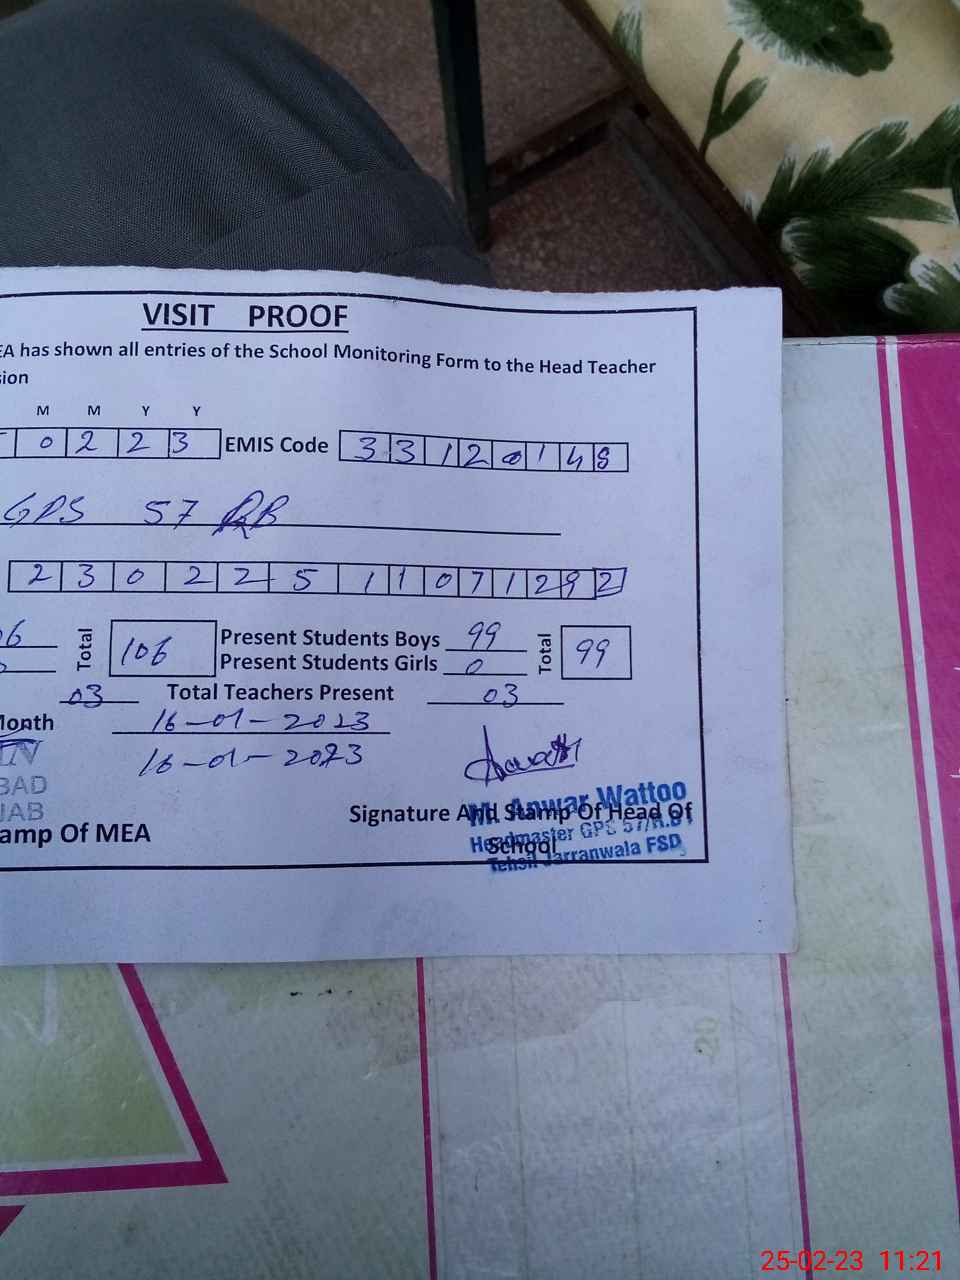 VISIT PROOF
EA has shown all entries of the School Monitoring Form to the Head Teacher
sion
M M Y Y
0 2 2 3 EMIS Code 3 3 1 2 0 1 4 8
GPS 57 RB
2 3 0 2 2 5 1 1 0 7 1 2 9 2
06 Total 106 Present Students Boys 99 Total 99
Present Students Girls 0
03 Total Teachers Present 03
Month 16-01-2023
16-01-2023
BAD
JAB
M. Anwar Wattoo
amp Of MEA Signature And Stamp Of Head Of
School
Headmaster GPS 57/R.B,
Tehsil Jarranwala FSD
25-02-23 11:21